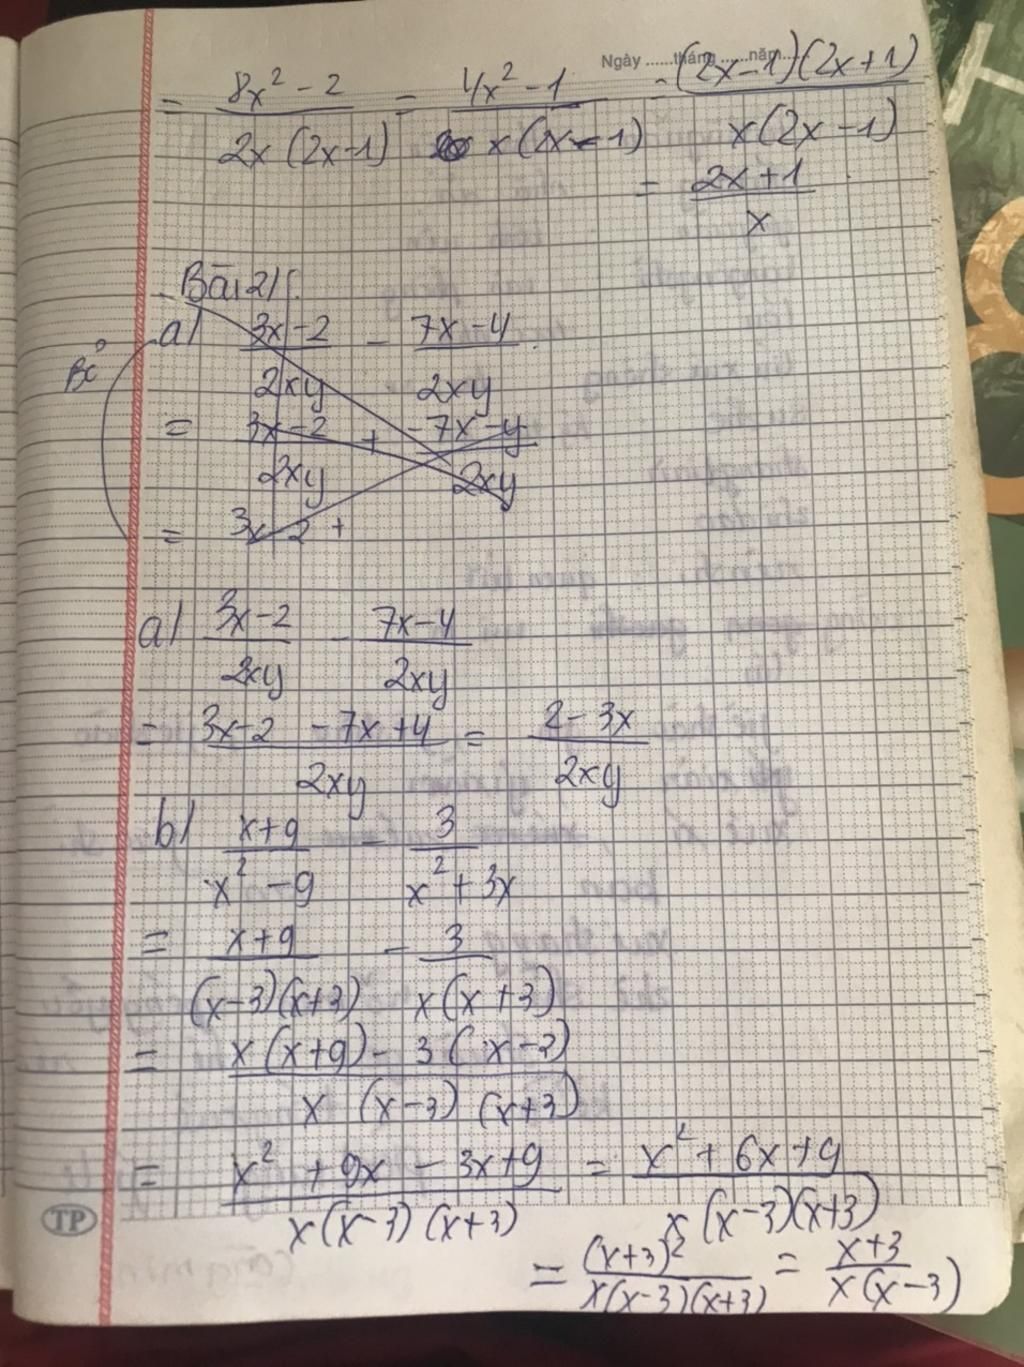 Ngày ......tháng ......năm ......
= (8x² - 2)/(2x (2x-1)) = (4x² - 1)/(x(2x-1)) = ((2x-1)(2x+1))/(x(2x-1))
= (2x+1)/x
Bài 2/:
a) (3x-2)/(2xy) - (7x-4)/(2xy)
Bỏ
= (3x-2)/(2xy) + (-7x-y)/(2xy)
= 3x-2 +
a) (3x-2)/(2xy) - (7x-4)/(2xy)
= (3x-2 -7x+4)/(2xy) = (2-3x)/(2xy)
b) (x+9)/(x²-9) - 3/(x²+3x)
= (x+9)/((x-3)(x+3)) - 3/(x(x+3))
= (x(x+9) - 3(x-3))/(x (x-3) (x+3))
= (x² + 9x - 3x+9)/(x(x-3)(x+3)) = (x² + 6x+9)/(x (x-3)(x+3))
= (x+3)²/(x(x-3)(x+3)) = (x+3)/(x(x-3))
TP